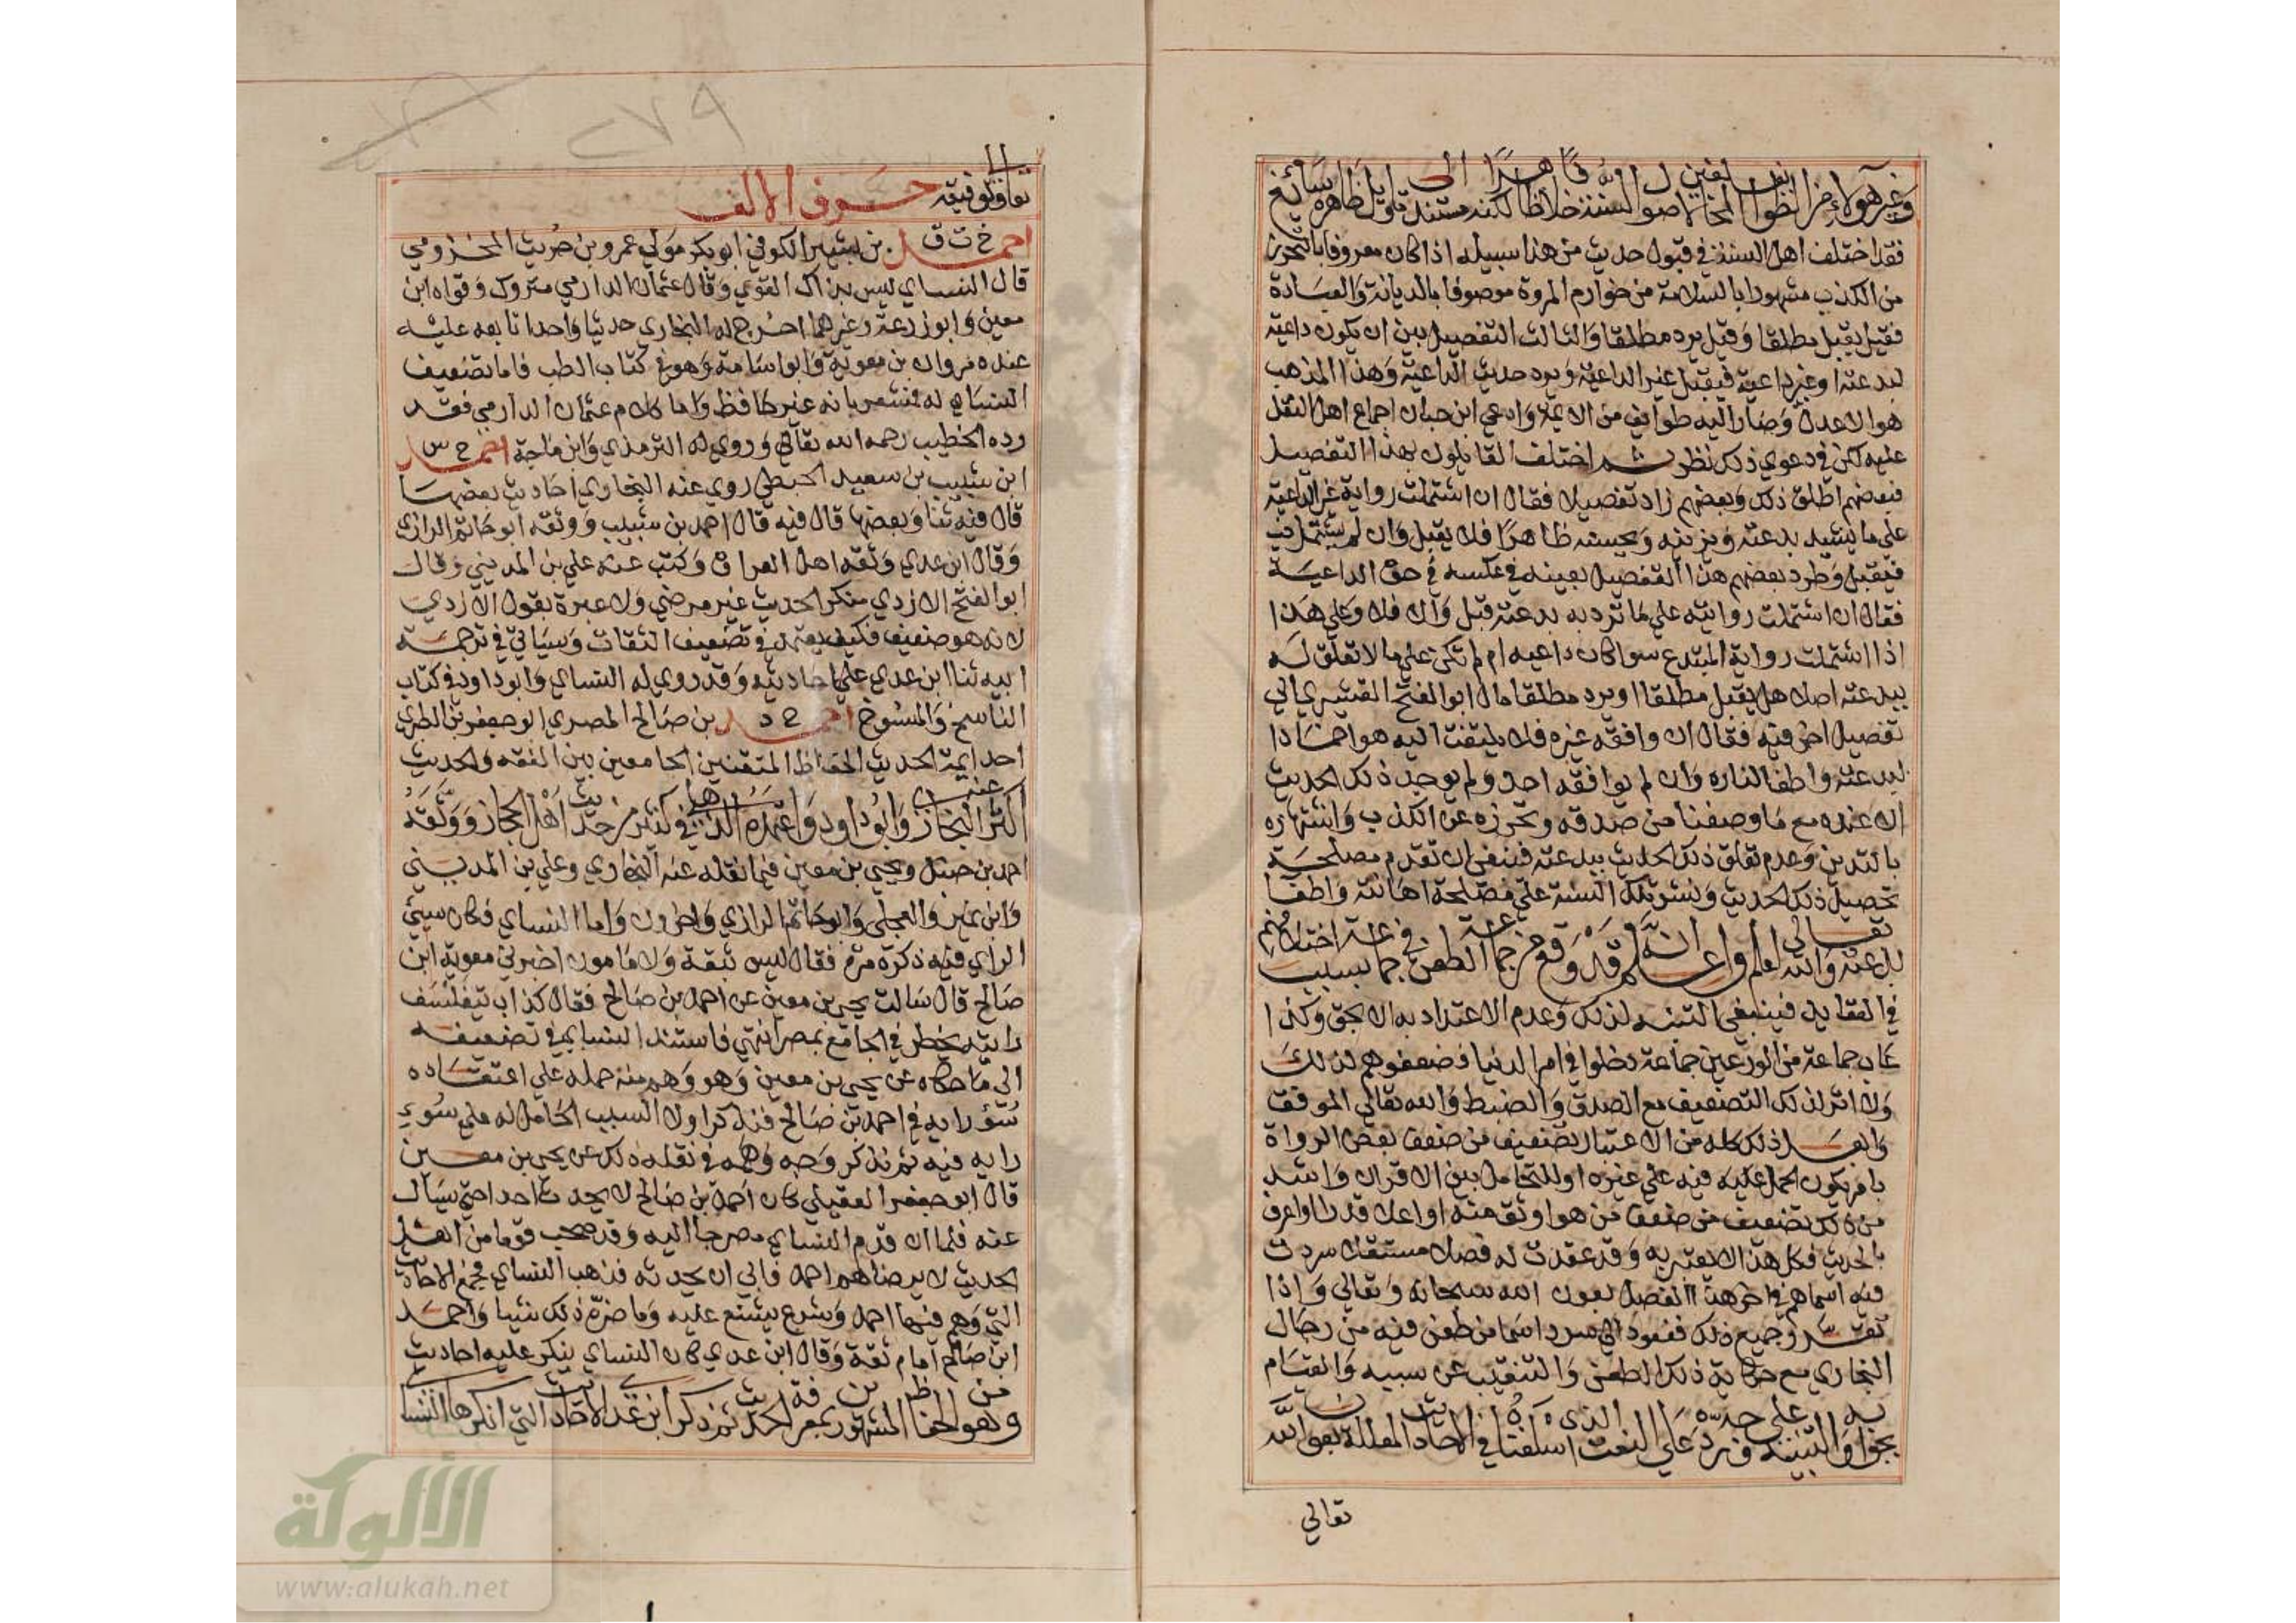 وغير هؤلاء من الطوائف المخالفين لاصول السنة خلافا ظاهرا لكنه مستند الى تاويل ظاهره سائغ
فقد اختلف اهل السنة في قبول حديث من هذا سبيله اذا كان معروفا بالتحرز
من الكذب مشهورا بالسلامة من خوارم المروة موصوفا بالديانة والعبادة
فقيل يقبل مطلقا وقيل يرد مطلقا والثالث التفصيل بين ان يكون داعية
لبدعته او غير داعية فيقبل غير الداعية ويرد حديث الداعية وهذا المذهب
هو الاعدل وصار اليه طوايف من الايمة وادعي ابن حبان اجماع اهل النقل
عليه لكن في دعوي ذلك نظر ثم اختلف القايلون بهذا التفصيل
فبعضهم اطلق ذلك وبعضهم زاد تفصيلا فقال ان اشتملت رواية غير الداعية
علي ما يشيد بدعته ويزينه ويحسنه ظاهرا فلا يقبل وان لم يشتمل
فيقبل وطرد بعضهم هذا التفصيل بعينه في عكسه في حق الداعية
فقال ان اشتملت روايته علي ما ترد به بدعته قبل والا فلا وعلي هذا
اذا اشتملت رواية المبتدع سوا كان داعيه ام لم تكن علي ما لا تعلق له
ببدعته اصلا هل يقبل مطلقا او يرد مطلقا مال ابو الفتح القشيري الي
تفصيل اخر فيه فقال ان وافقه غيره فلا يلتفت اليه هو اخمادا
لبدعته واطفا لناره وان لم يوافقه احد ولم يوجد ذلك الحديث
الا عنده مع ما وصفنا من صدقه وتحرزه عن الكذب واشتهاره
بالتدين وعدم تعلق ذلك الحديث ببدعته فينبغي ان تقدم مصلحة
تحصيل ذلك الحديث ونشر تلك السنة علي مصلحة اهانته واطفا
بدعته والله تعالى اعلم واعلم انه قد وقع من جماعة الطعن في جماعة بسبب اختلافهم
في العقايد فينبغي التنبه لذلك وعدم الاعتداد به الا بحق وكذا
عاب جماعة من الورعين جماعة دخلوا في امر الدنيا فضعفوهم لذلك
ولا اثر لذلك التضعيف مع الصدق والضبط والله تعالي الموفق
وابعد ذلك كله من الاعتبار تضعيف من ضعف بعض الرواة
بامر يكون الحمل عليه فيه علي غيره او للتحامل بين الاقران واشد
من ذلك تضعيف من ضعف من هو اوثق منه او اعلا قدرا او اعرف
بالحديث فكل هذا لا يعتبر به وقد عقدت له فصلا مستقلا سردت
فيه اسماهم في اخر هذا الفصل بعون الله سبحانه وتعالي واذا
تقرر جميع ذلك فنعود الي سرد اسما من طعن فيه من رجال
البخاري مع حكاية ذلك الطعن والتنقيب عن سببه والقيام
بجوابه والتنبيه على وجه رده على النعت الذى اسلفناه في الاحاديث المعللة بعون الله
تعالي
٢٧٩
تعالى وتوفيقه حرف الالف
احمد خ ت ق بن بشير الكوفي ابو بكر مولي عمرو بن حريث المخزومي
قال النساي ليس بذاك القوي وقال عثمان الدارمي متروك وقواه ابن
معين وابو زرعة وغيرهما اخرج له البخاري حديثا واحدا تابعه عليه
عنده مروان بن معوية وابو اسامة وهو في كتاب الطب فاما تضعيف
النساي له فمشعر بانه غير حافظ واما كلام عثمان الدارمي فقد
رده الخطيب رحمه الله تعالي وروي له الترمذي وابن ماجة احمد خ س
ابن شبيب بن سعيد الحبطي روي عنه البخاري احاديث بعضها
قال فيه ثنا وبعضها قال فيه قال احمد بن شبيب ووثقه ابو حاتم الرازي
وقال ابن عدي وثقه اهل العراق وكتب عنه علي بن المديني وقال
ابو الفتح الازدي منكر الحديث غير مرضي ولا عبرة بقول الازدي
لانه هو ضعيف فكيف يعتمد في تضعيف الثقات وسياتي في ترجمة
ابيه ثنا ابن عدي علي احاديثه وقد روي له النساي وابو داود في كتاب
الناسخ والمنسوخ احمد خ د بن صالح المصري ابو جعفر بن الطبري
احد ايمة الحديث الحفاظ المتقنين الجامعين بين الفقه والحديث
اكثر عنه البخاري وابو داود واعتمده الذهلي في كثير من حديث اهل الحجاز ووثقه
احمد بن حنبل ويحيي بن معين فيما نقله عنه البخاري وعلي بن المديني
وابن نمير والعجلي وابو حاتم الرازي واخرون واما النساي فكان سيئ
الراي فيه ذكره مرة فقال ليس بثقة ولا مامون اخبرني معوية ابن
صالح قال سالت يحيي بن معين عن احمد بن صالح فقال كذاب يتفلسف
رايته يخطر في الجامع بمصر انتهي فاستند النساي في تضعيفه
الي ما حكاه عن يحيي بن معين وهو وهم منه حمله علي اعتقاده
سؤ رايه في احمد بن صالح فنذكر اولا السبب الحامل له علي سوء
رايه فيه ثم نذكر وجه وهمه في نقله ذلك عن يحيي بن معين
قال ابو جعفر العقيلي كان احمد بن صالح لا يحدث احدا حتي يسال
عنه فلما ان قدم النساي مصر جا اليه وقد صحب قوما من اهل
الحديث لا يرضاهم احمد فابي ان يحدثه فذهب النساي فجمع الاحاديث
التي وهم فيها احمد وشرع يشنع عليه وما ضره ذلك شيا واحمد
ابن صالح امام ثقة وقال ابن عدي كان النساي ينكر عليه احاديث
وهو من الحفاظ المشهورين بمعرفة الحديث ثم ذكر ابن عدي الاحاديث التي انكرها النساي
الألوكة
www.alukah.net